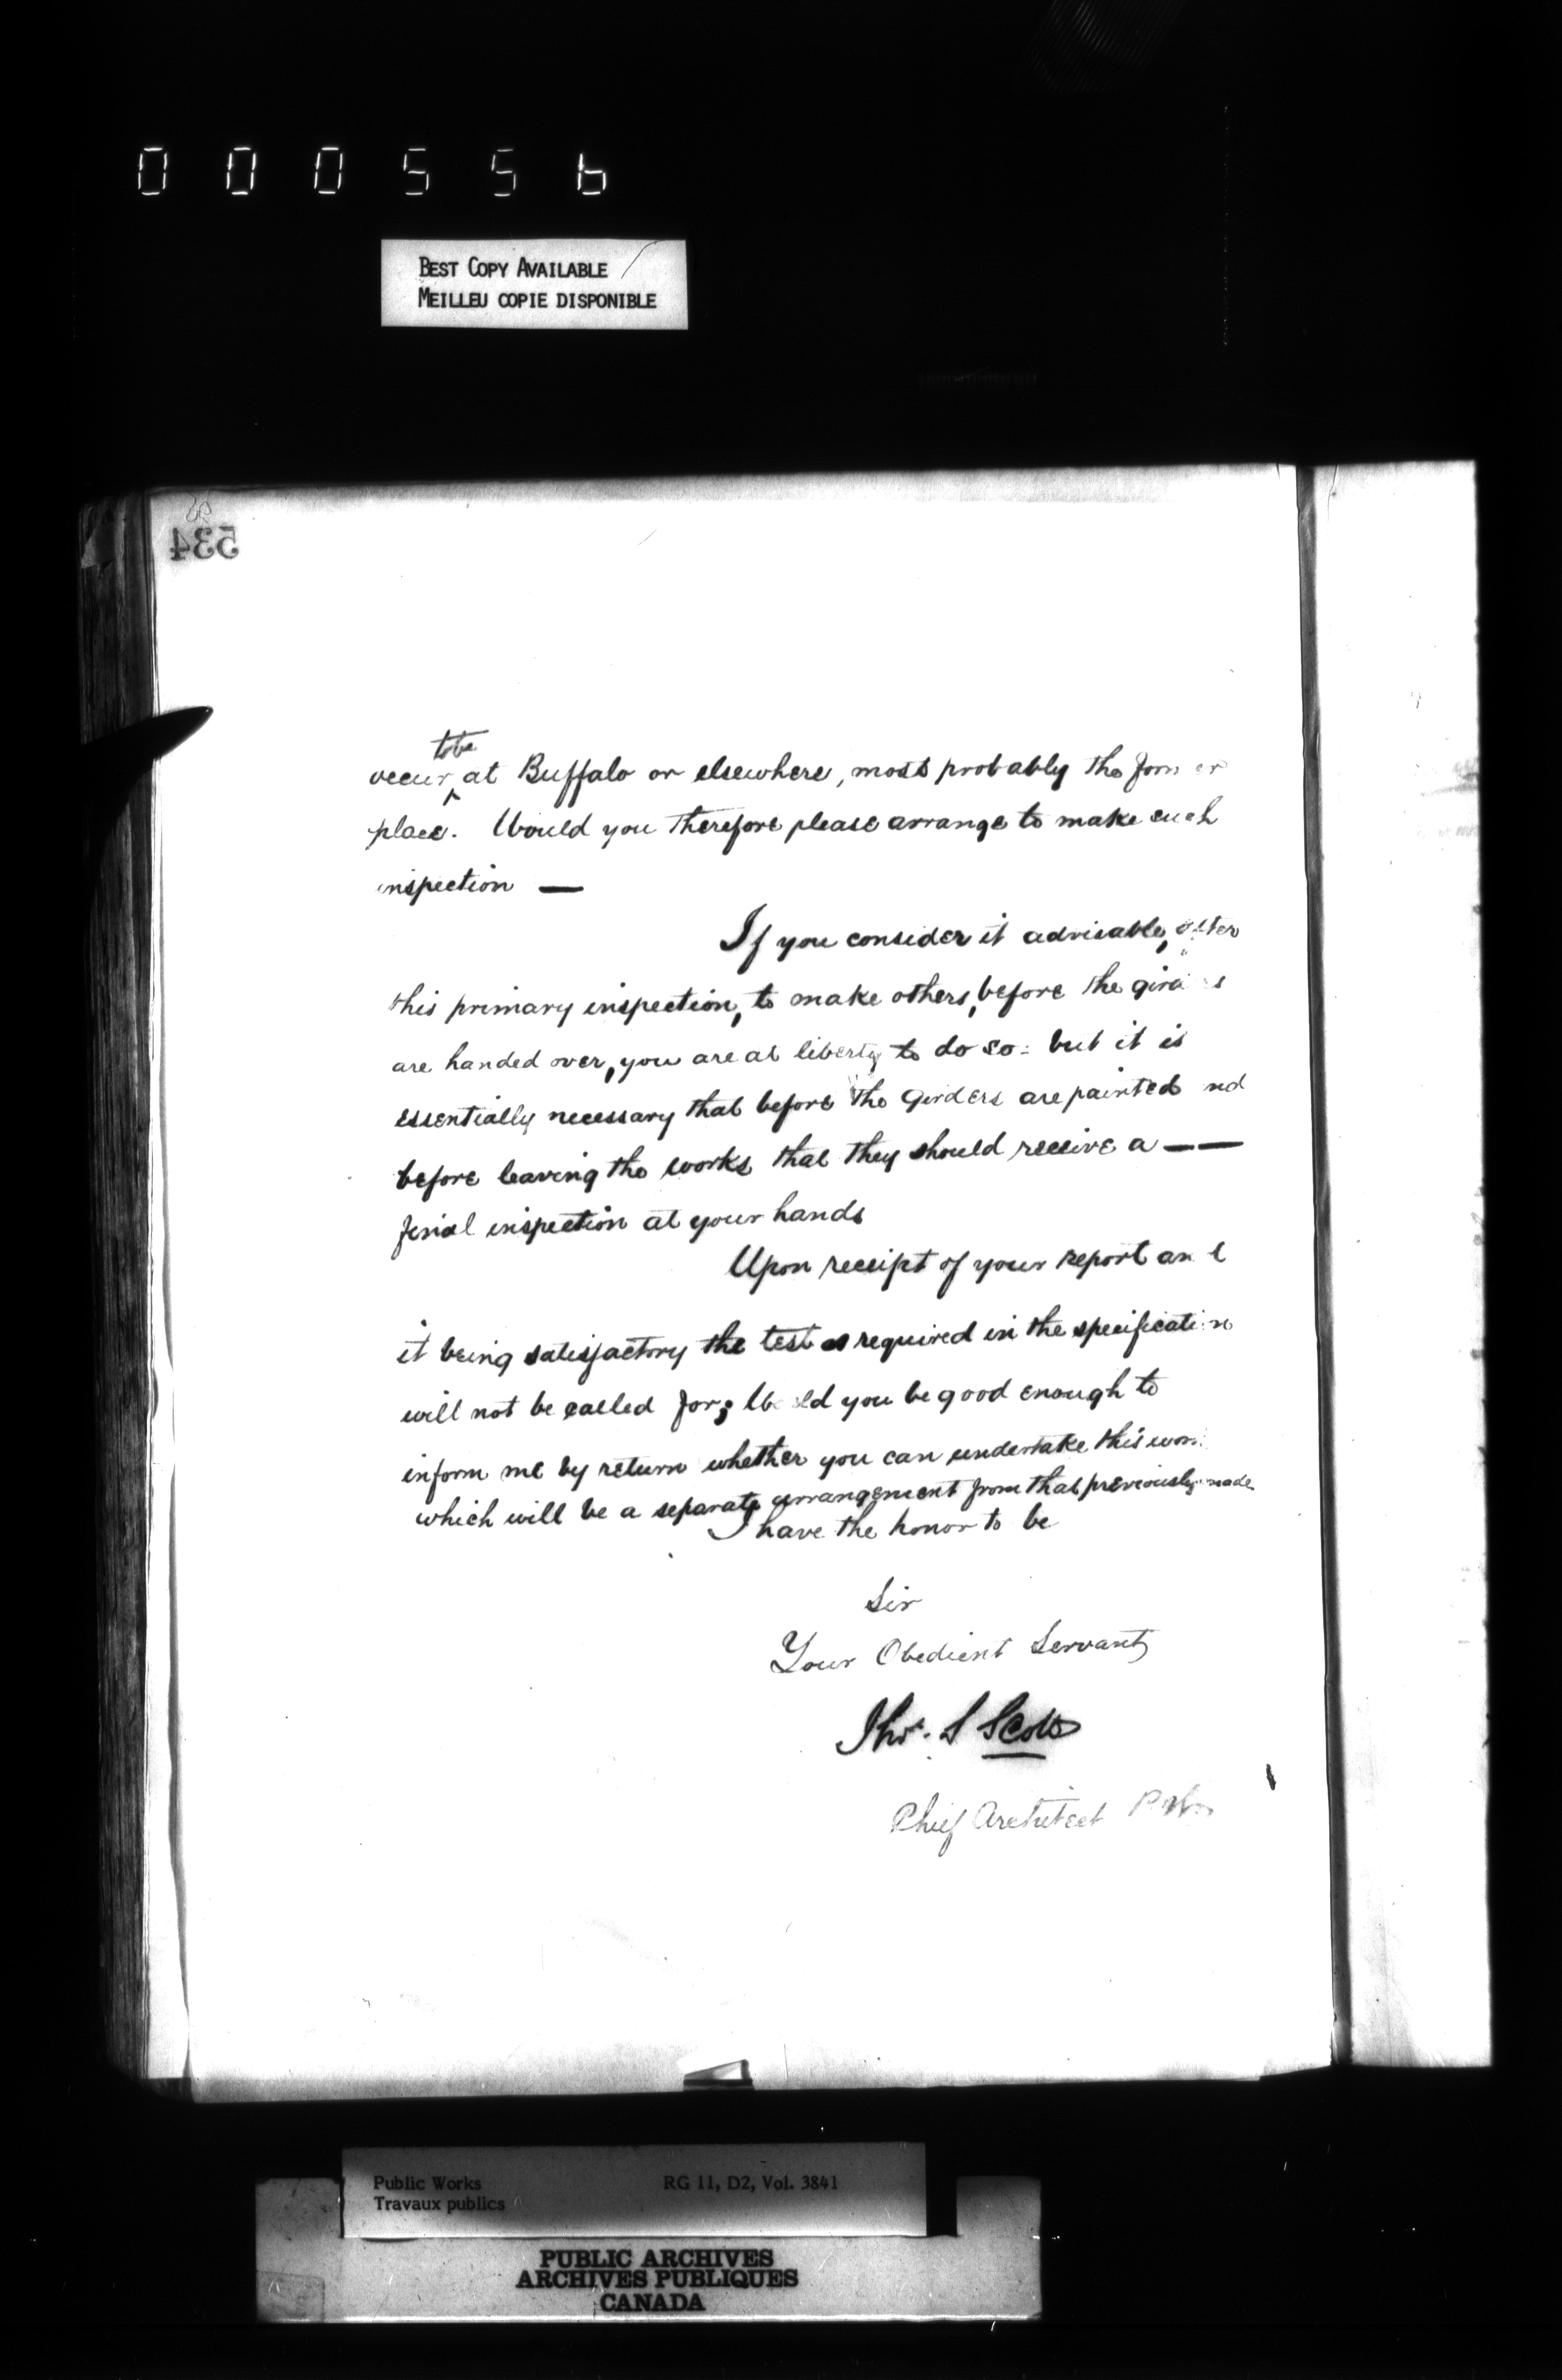 000556
BEST COPY AVAILABLE
MEILLEU COPIE DISPONIBLE
534
to be
occur at Buffalo or elsewhere, most probably the former
place. Would you therefore please arrange to make such
inspection —
If you consider it advisable, after
this primary inspection, to make others, before the girders
are handed over, you are at liberty to do so: but it is
essentially necessary that before the Girders are painted and
before leaving the works that they should receive a ——
final inspection at your hands
Upon receipt of your report and
it being satisfactory the test as required in the specification
will not be called for; Would you be good enough to
inform me by return whether you can undertake this work
which will be a separate arrangement from that previously made
I have the honor to be
Sir
Your Obedient Servant
Thos. S Scott
Chief Architect
Public Works RG 11, D2, Vol. 3841
Travaux publics
PUBLIC ARCHIVES
ARCHIVES PUBLIQUES
CANADA